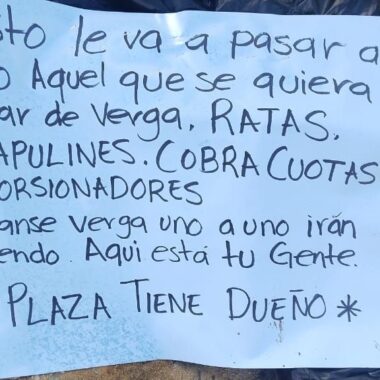 sto le va a pasar a
o Aquel que se quiera
ar de Verga, RATAS,
APULINES. COBRA CUOTAS
ORSIONADORES
anse verga uno a uno irán
endo. Aqui está tu Gente.
PLAZA TIENE DUEÑO *